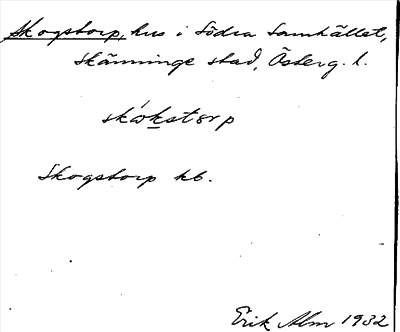 Skogstorp, hus i Södra Samhället,
Skänninge stad, Österg. l.
skòkstorp
Skogstorp kb.
Erik Alm 1932